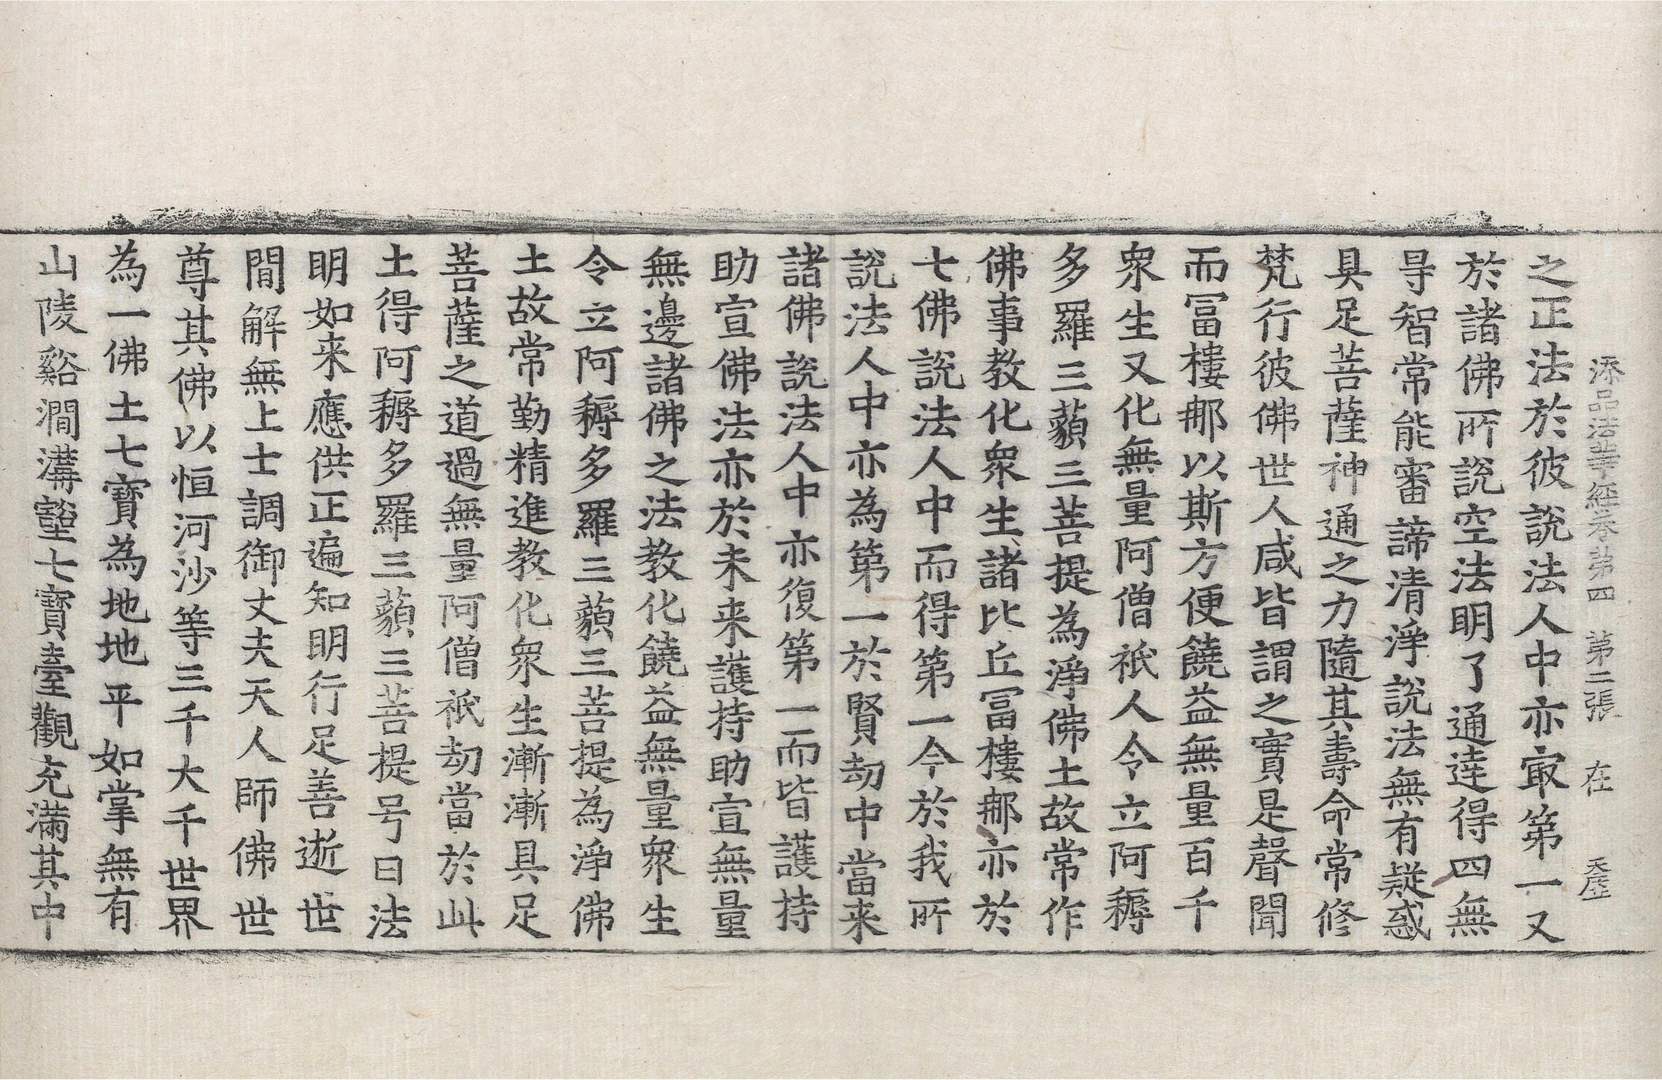 添品法華經卷第四　第二張　在
之正法於彼說法人中亦㝡第一又
於諸佛所說空法明了通達得四無
㝵智常能審諦清淨說法無有疑惑
具足菩薩神通之力隨其壽命常修
梵行彼佛世人咸皆謂之實是聲聞
而冨樓那以斯方便饒益無量百千
衆生又化無量阿僧祇人令立阿耨
多羅三藐三菩提為淨佛土故常作
佛事教化衆生諸比丘冨樓那亦於
七佛說法人中而得第一今於我所
說法人中亦為第一於賢劫中當来
諸佛說法人中亦復第一而皆護持
助宣佛法亦於未来護持助宣無量
無邊諸佛之法教化饒益無量衆生
令立阿耨多羅三藐三菩提為淨佛
土故常勤精進教化衆生漸漸具足
菩薩之道過無量阿僧祇劫當於此
土得阿耨多羅三藐三菩提号曰法
明如来應供正遍知明行足善逝世
間解無上士調御丈夫天人師佛世
尊其佛以恒河沙等三千大千世界
為一佛土七寶為地地平如掌無有
山陵谿澗溝壑七寶臺觀充滿其中